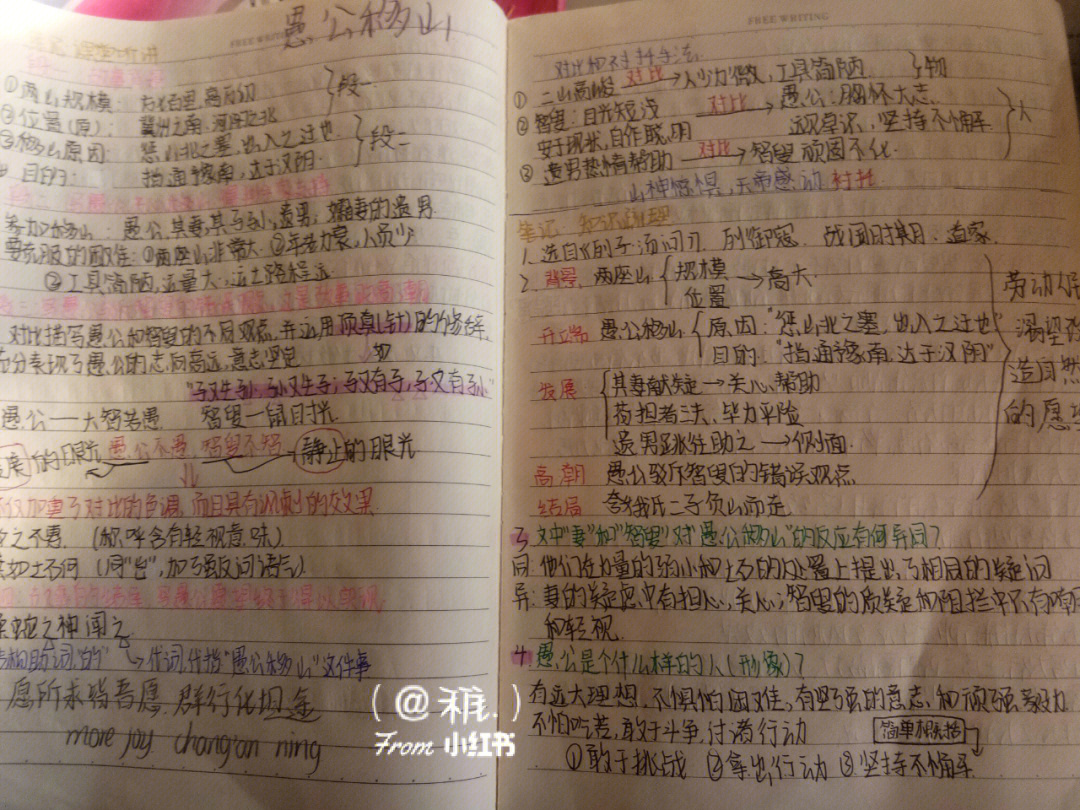 FREE WRITING
愚公移山
笔记 课堂听讲
①两山规模: 方七百里,高万仞 }段一
②位置(原): 冀州之南,河阳之北
③移山原因: 惩山北之塞,出入之迂也 }段二
目的: 指通豫南,达于汉阴.
参加移山: 愚公,其妻,其子孙,遗男,孀妻的遗男
要克服的困难: ①两座山非常大 ②年老力衰,人员少
③工具简陋,运量大,运土路程远
对比描写愚公和智叟的不同观点,并运用顶真(针)的修辞,
充分表现了愚公的志向高远,意志坚定
如
"子又生孙,孙又生子;子又有子,子又有孙"
愚公——大智若愚 智叟—鼠目寸光
发展的眼光 愚公不愚,智叟不智 静止的眼光
不仅加重了对比的色调,而且具有讽刺的效果
汝之不惠 (称呼含有轻视意味)
其如土石何 (同"岂",加强反问语气)
操蛇之神闻之
结构助词,"的" 代词,代指"愚公移山"这件事
愿所求皆吾愿,群行化坦途
more joy chang'an ning
FREE WRITING
对比和衬托手法
① 二山高峻 对比→人少力微,工具简陋 }物
② 智叟:目光短浅 对比→ 愚公:胸怀大志
安于现状,自作聪明 远见卓识,坚持不懈 }人
③ 遗男热情帮助 对比→智叟顽固不化
山神惊惧,天帝感动 衬托
笔记 知识梳理
1.选自《列子·汤问》. 列御寇. 战国时期. 道家.
2. 背景 两座山{规模 位置→高大
开端 愚公移山{原因:"惩山北之塞,出入之迂也"
目的:"指通豫南,达于汉阴"
发展 {其妻献疑→关心,帮助
荷担者三夫,毕力平险
遗男跳往助之→侧面
高潮 愚公驳斥智叟的错误观点
结局 夸娥氏二子负山而走
劳动人民
渴望
造自然
的愿
3.文中"妻"和"智叟"对"愚公移山"的反应有何异同?
同:他们在力量的弱小和土石的处置上提出了相同的疑问
异:妻的疑虑中有担心,关心;智叟的质疑和阻拦中只有嘲
和轻视
4.愚公是个什么样的人(形象)?
有远大理想,不惧怕困难,有坚强的意志,和顽强毅力
不怕吃苦,敢于斗争,付诸行动
简单概括
①敢于挑战 ②拿出行动 ③坚持不懈
From 小红书